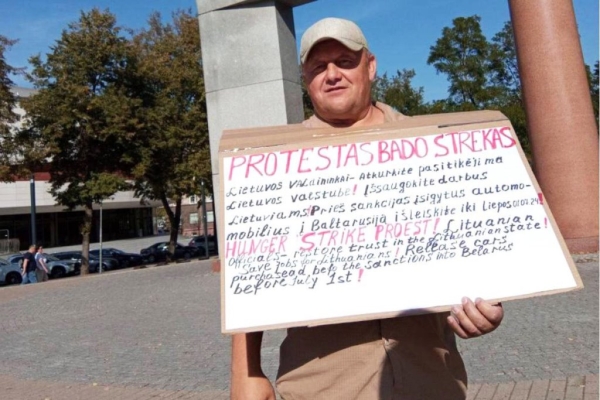 PROTESTAS BADO STREKAS
Lietuvos Valdininkai- Atkurkite pasitikėjima
Lietuvos vatstube! Išsaugokite darbus
Lietuviams! Prieš sankcijas įsigytus automo-
mobilius į Baltarusiją išleiskite iki Liepos 01.07.24!
HUNGER STRIKE PROEST! Lituanian
Officials- restore trust in the Lithuanian state!
Save jobs for Lithuanians! Reltase cars
purchasead before the sanctions into Belarus
before July 1st!